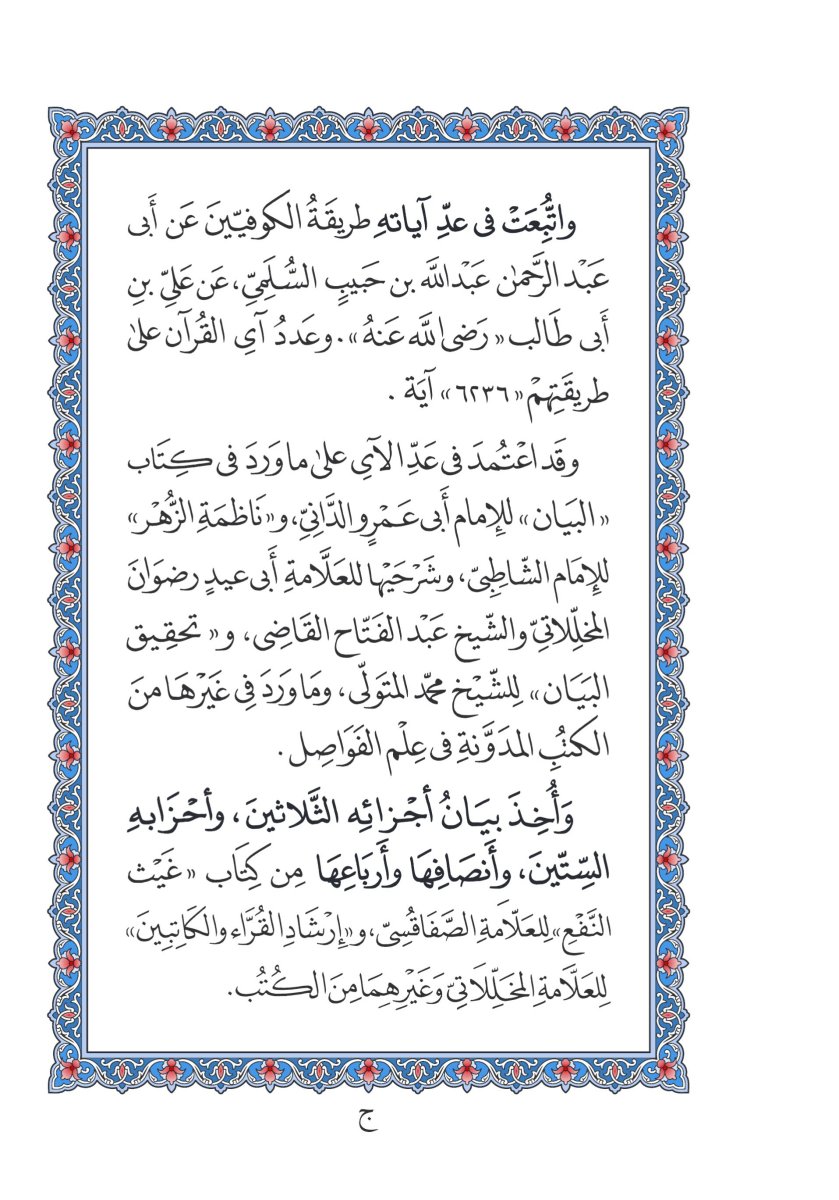 واتُّبِعَتْ فى عدِّ آياتهِ طريقَةُ الكوفيّينَ عَن أَبى
عَبْد الرَّحمٰن عَبْدالله بن حَبيبٍ السُّلَمِىّ، عَن عَلِىّ بنِ
أَبى طَالب « رَضى الله عَنهُ ». وعَددُ آىِ القُرآن علىٰ
طريقَتِهِمْ « ٦٢٣٦ » آيَة .
وقَد اعْتُمدَ فى عَدِّ الآىِ علىٰ ما وَردَ فى كِتَاب
« البَيَان » للإمام أَبى عَمْرٍو الدَّانِىّ، و« نَاظمَةِ الزُّهْر »
للإمَام الشّاطِبىّ، وشَرْحَيْها للعَلَّامةِ أَبى عيدٍ رضوَانَ
المخلّلاتىّ والشّيخ عَبْد الفَتّاح القَاضِى، و« تحقِيق
البَيَان » لِلشّيْخ محمّد المتَولّى، ومَا وَرَدَ فِى غَيْرهَا منَ
الكتُبِ المدَوَّنةِ فى عِلْم الفَوَاصِل .
وَأُخِذَ بيَانُ أجْزائِه الثَّلاثينَ، وأحْزَابهِ
السِّتّينَ، وأَنصَافِهَا وأَربَاعِهَا مِن كِتَاب « غَيْث
النَّفْعِ » لِلعَلّامةِ الصَّفَاقُسِىّ، و« إرْشَادِ القُرَّاء والكَاتِبِينَ »
لِلعَلَّامةِ المخَلّلَاتىّ وَغَيْرِهِمَا مِنَ الكُتُب.
ج